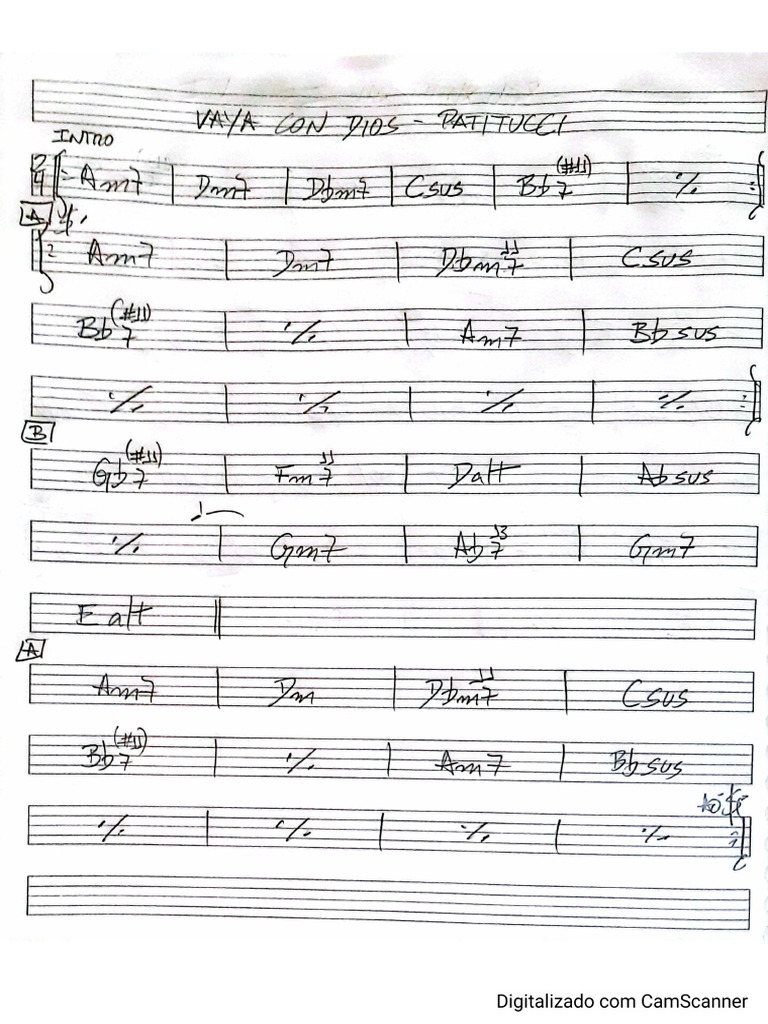 VAYA CON DIOS - PATITUCCI
INTRO
2/4 Am7 | Dm7 | Dbm7 | Csus | Bb7(#11) | ٪
A
Am7 | Dm7 | Dbm7 11 | Csus
Bb7(#11) | ٪ | Am7 | Bbsus
٪ | ٪ | ٪ | ٪
B
Gb7(#11) | Fm7 11 | Dalt | Absus
٪ | Gm7 | Ab7 13 | Gm7
E alt
A
Am7 | Dm | Dbm7 11 | Csus
Bb7(#11) | ٪ | Am7 | Bbsus
Ao
٪ | ٪ | ٪ | ٪
Digitalizado com CamScanner